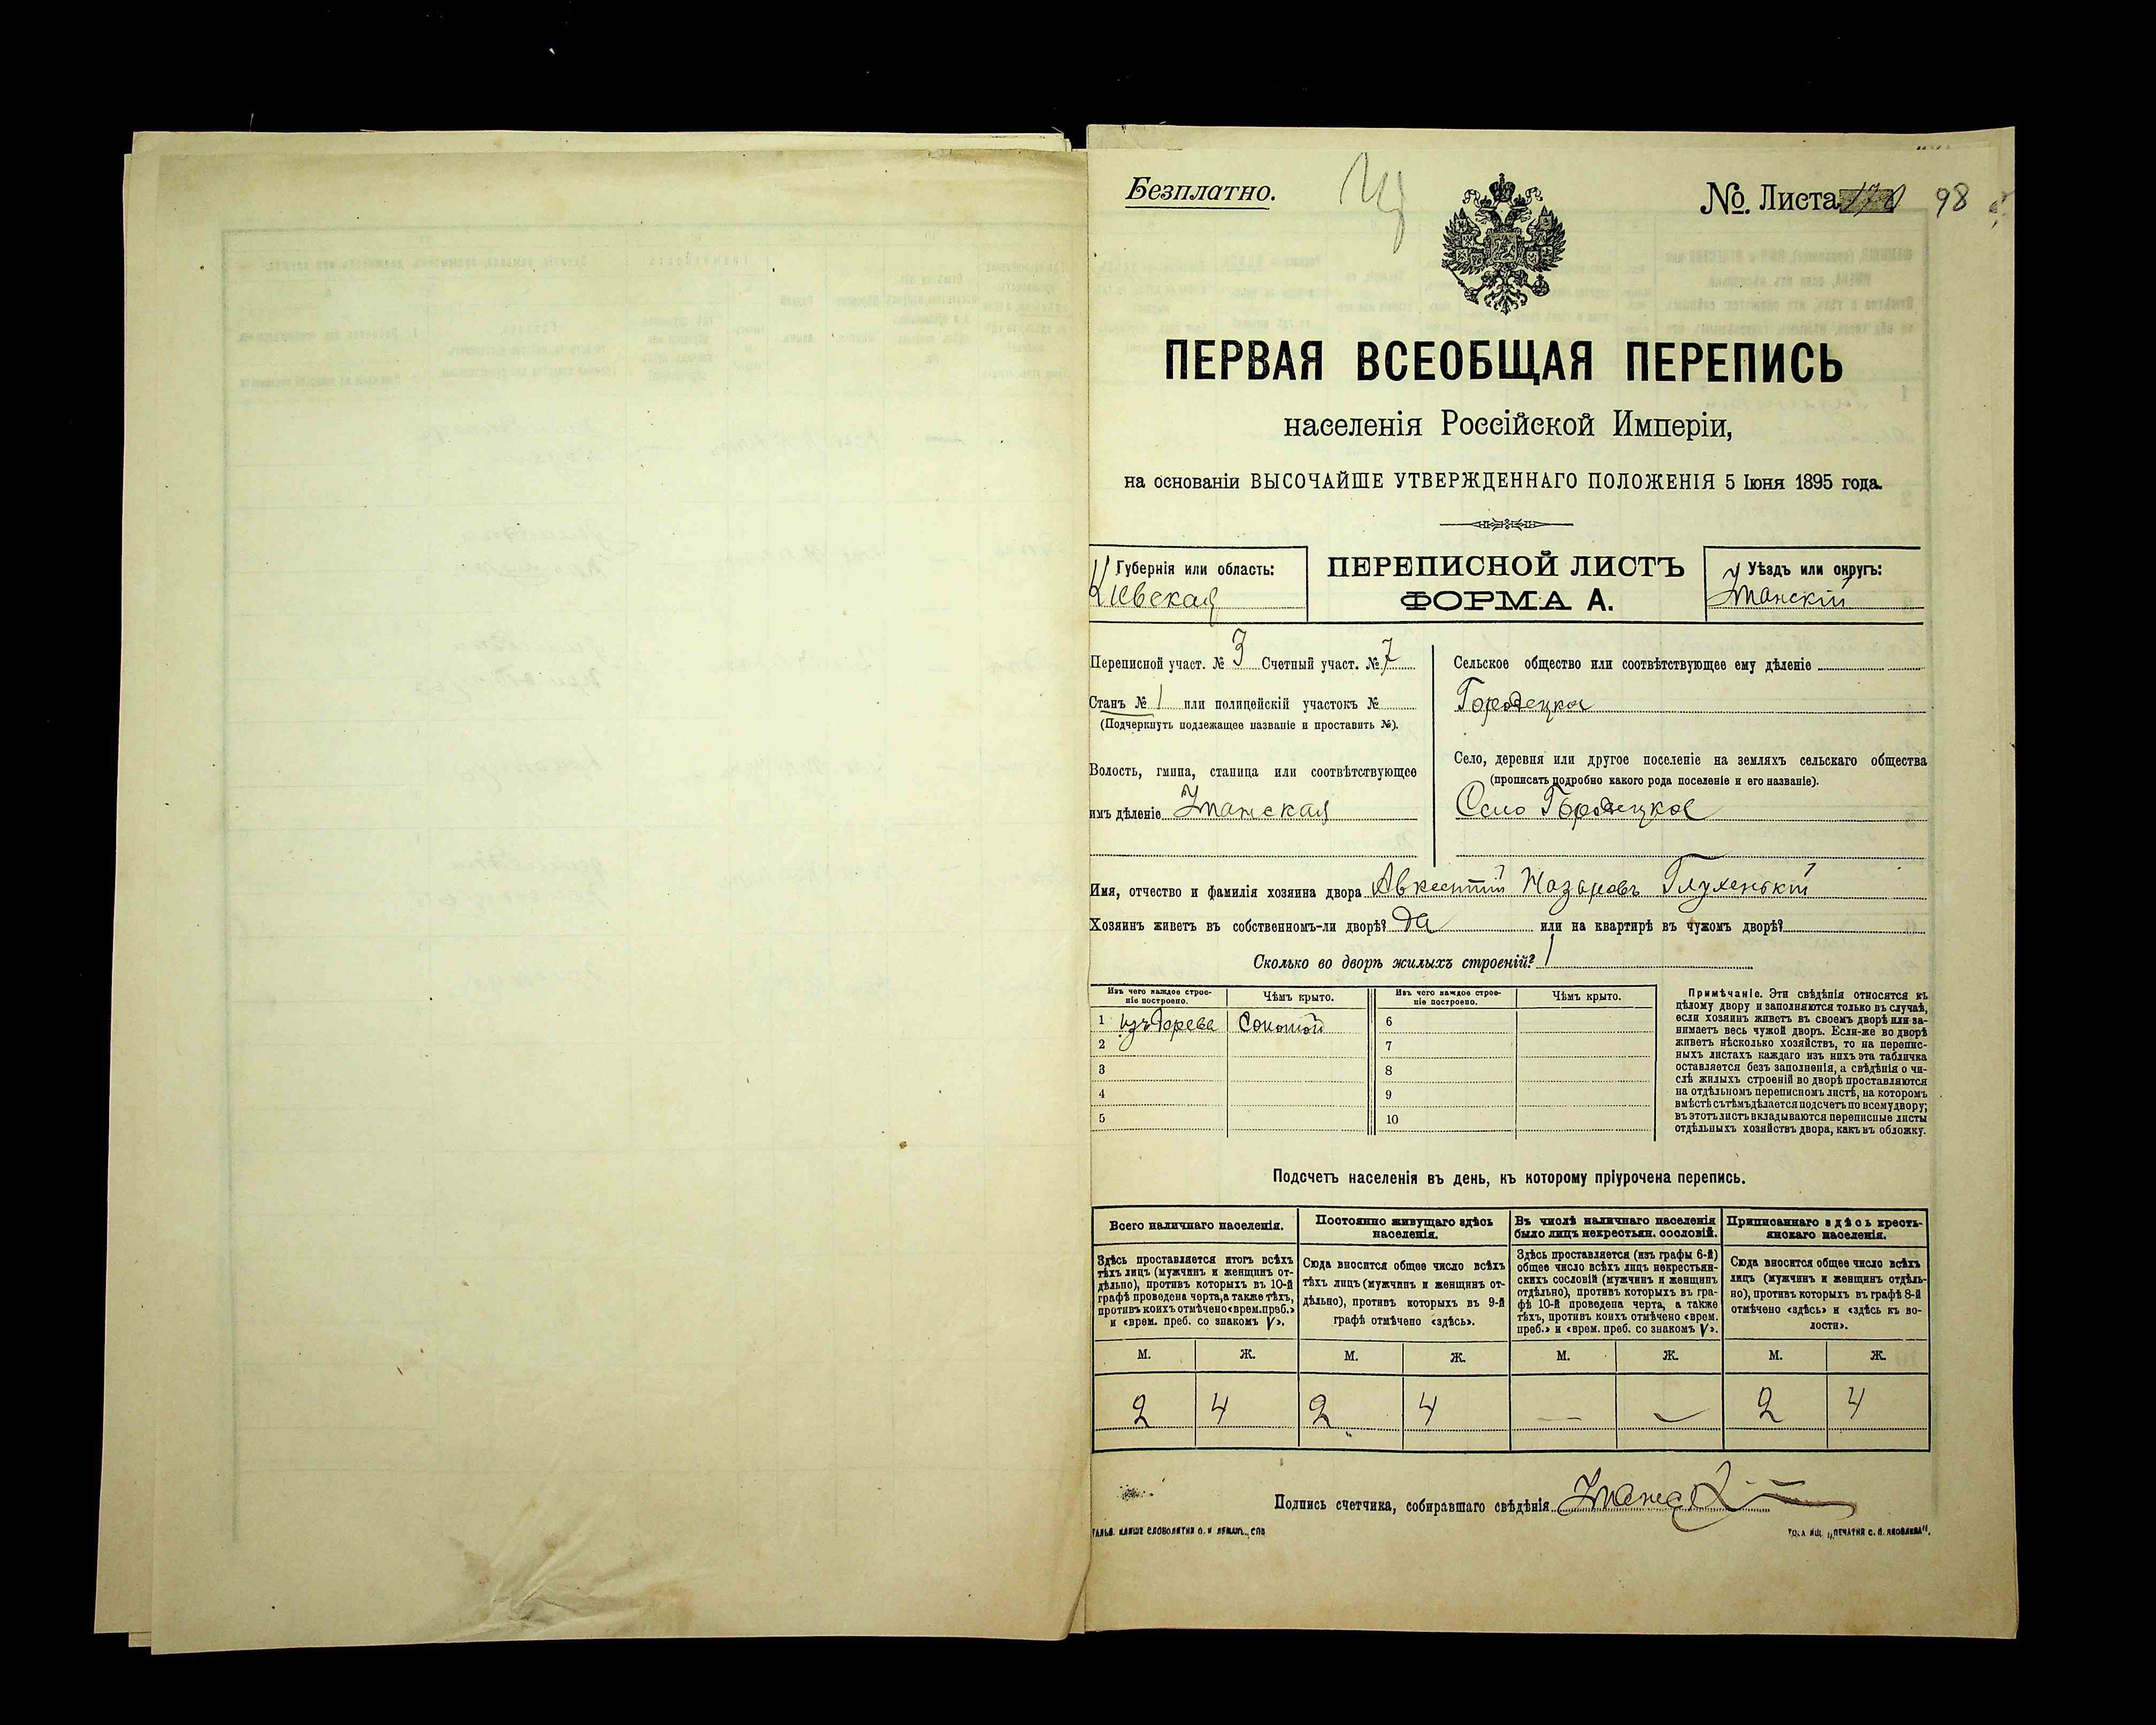 Безплатно.
№. Листа 98
ПЕРВАЯ ВСЕОБЩАЯ ПЕРЕПИСЬ
населенія Россійской Имперіи,
на основаніи ВЫСОЧАЙШЕ УТВЕРЖДЕННАГО ПОЛОЖЕНІЯ 5 Іюня 1895 года.
Губернія или область:
Кіевская
ПЕРЕПИСНОЙ ЛИСТЪ
ФОРМА А.
Уѣздъ или округъ:
Уманскій
Переписной участ. № 3 Счетный участ. № 7
Станъ № 1 или полицейскій участокъ №
(Подчеркнуть подлежащее названіе и проставить №).
Волость, гмина, станица или соотвѣтствующее
имъ дѣленіе Уманская
Сельское общество или соотвѣтствующее ему дѣленіе
Городецкое
Село, деревня или другое поселеніе на земляхъ сельскаго общества
(прописать подробно какого рода поселеніе и его названіе).
Село Городецкое
Имя, отчество и фамилія хозяина двора Авксентій Назаровъ Глухенькій
Хозяинъ живетъ въ собственномъ-ли дворѣ? Да или на квартирѣ въ чужомъ дворѣ?
Сколько во дворѣ жилыхъ строеній? 1
Изъ чего каждое строе-
ніе построено.
Чѣмъ крыто.
Изъ чего каждое строе-
ніе построено.
Чѣмъ крыто.
1 изъ дерева Соломой 6
2 7
3 8
4 9
5 10
Примѣчаніе. Эти свѣдѣнія относятся къ
цѣлому двору и заполняются только въ случаѣ,
если хозяинъ живетъ въ своемъ дворѣ или за-
нимаетъ весь чужой дворъ. Если-же во дворѣ
живетъ нѣсколько хозяйствъ, то на перепис-
ныхъ листахъ каждаго изъ нихъ эта табличка
оставляется безъ заполненія, а свѣдѣнія о чи-
слѣ жилыхъ строеній во дворѣ проставляются
на отдѣльномъ переписномъ листѣ, на которомъ
вмѣстѣ съ тѣмъ дѣлается подсчетъ по всему двору;
въ этотъ листъ вкладываются переписные листы
отдѣльныхъ хозяйствъ двора, какъ въ обложку.
Подсчетъ населенія въ день, къ которому пріурочена перепись.
Всего наличнаго населенія.
Здѣсь проставляется итогъ всѣхъ
тѣхъ лицъ (мужчинъ и женщинъ от-
дѣльно), противъ которыхъ въ 10-й
графѣ проведена черта, а также тѣхъ,
противъ коихъ отмѣчено «врем. преб.»
и «врем. преб. со знакомъ V».
Постоянно живущаго здѣсь
населенія.
Сюда вносится общее число всѣхъ
тѣхъ лицъ (мужчинъ и женщинъ от-
дѣльно), противъ которыхъ въ 9-й
графѣ отмѣчено «здѣсь».
Въ числѣ наличнаго населенія
было лицъ некрестьян. сословій.
Здѣсь проставляется (изъ графы 6-й)
общее число всѣхъ лицъ некрестьян-
скихъ сословій (мужчинъ и женщинъ
отдѣльно), противъ которыхъ въ гра-
фѣ 10-й проведена черта, а также
тѣхъ, противъ коихъ отмѣчено «врем.
преб.» и «врем. преб. со знакомъ V».
Приписаннаго здѣсь кресть-
янскаго населенія.
Сюда вносится общее число всѣхъ
лицъ (мужчинъ и женщинъ отдѣль-
но), противъ которыхъ въ графѣ 8-й
отмѣчено «здѣсь» и «здѣсь къ во-
лости».
М. Ж. М. Ж. М. Ж. М. Ж.
2 4 2 4 — — 2 4
Подпись счетчика, собиравшаго свѣдѣнія